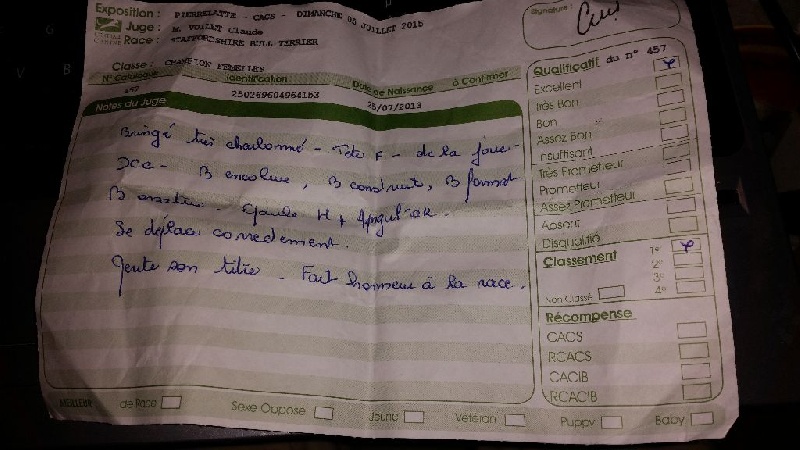 Exposition : PIERRELATTE - CACS - DIMANCHE 05 JUILLET 2015
Juge : M. VOILET Claude
Race : STAFFORDSHIRE BULL TERRIER
Signature :
Classe : CHAMPION FEMELLES
N° Catalogue Identification Date de Naissance à Confirmer
457 250269604964163 25/07/2013
Notes du Juge
Bringé très charbonné - Tete F - de la joue -
DOC - B encolure, B construit, B format
B - Epaule H +
Se déplace correctement.
son titre - Fait honneur à la race.
Qualificatif du n° 457
Excellent
Très Bon
Bon
Assez Bon
Insuffisant
Très Prometteur
Prometteur
Assez Prometteur
Absent
Disqualifié
Classement 1°
2°
3°
Non Classé 4°
Récompense
CACS
RCACS
CACIB
RCACIB
MEILLEUR de Race Sexe Opposé Jeune Vétéran Puppy Baby